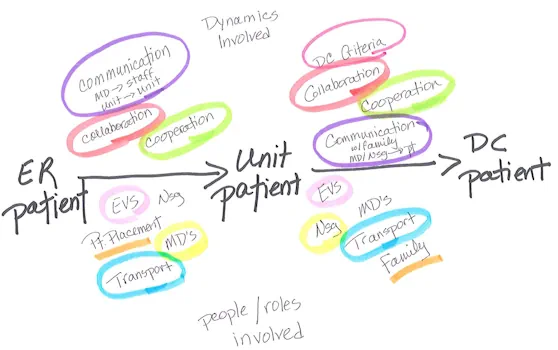 Dynamics
Involved
Communication
MD → staff
unit → unit
Collaboration
Cooperation
DC Criteria
Collaboration
Cooperation
Communication
w/family
MD/Nsg → pt
ER
patient
Unit
patient
DC
patient
EVS
Nsg
Pt. Placement
MD's
Transport
EVS
MD's
Nsg
Transport
Family
people/roles
involved